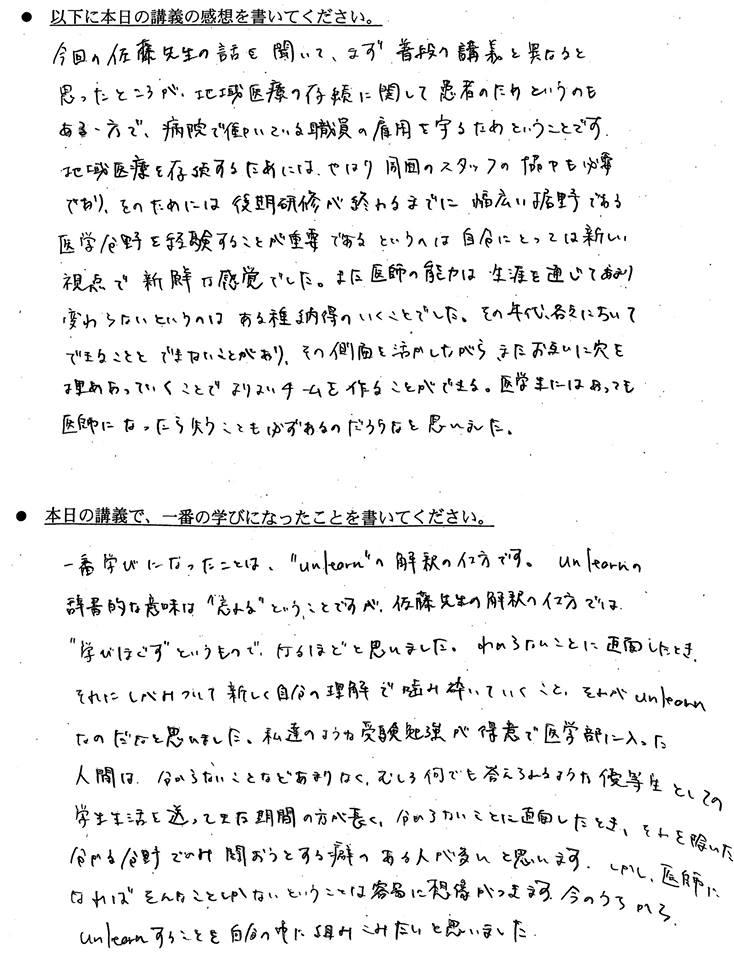 ● 以下に本日の講義の感想を書いてください。
今回の佐藤先生の話を聞いて、まず普段の講義と異なると
思ったところが、地域医療の存続に関して患者のためというのも
ある一方で、病院で働いている職員の雇用を守るためということです。
地域医療を存続するためには、やはり周囲のスタッフの協力も必要
であり、そのためには後期研修が終わるまでに幅広い裾野である
医学分野を経験することが重要であるというのは自分にとっては新しい
視点で新鮮な感覚でした。また医師の能力は生涯を通じてあまり
変わらないというのはある種納得のいくことでした。その年代、各々において
できることとできないことがあり、その側面を活かしながらまたお互いに穴を
埋めあっていくことでよりよいチームを作ることができる。医学生にはあっても
医師になったら失うことも必ずあるのだろうなと思いました。
● 本日の講義で、一番の学びになったことを書いてください。
一番学びになったことは、"unlearn"の解釈の仕方です。unlearnの
辞書的な意味は"忘れる"ということですが、佐藤先生の解釈の仕方では
"学びほぐす"というもので、なるほどと思いました。わからないことに直面したとき、
それにしがみついて新しく自分の理解で噛み砕いていくこと、それがunlearn
なのだなと思いました。私達のような受験勉強が得意で医学部に入った
人間は、分からないことなどあまりなく、むしろ何でも答えられるような優等生としての
学生生活を送ってきた期間の方が長く、分からないことに直面したとき、それを除いた
分かる分野でのみ闘おうとする癖のある人が多いと思います。しかし、医師に
なればそんなことしかないということは容易に想像がつきます。今のうちから、
unlearnすることを自分の中に組みこみたいと思いました。